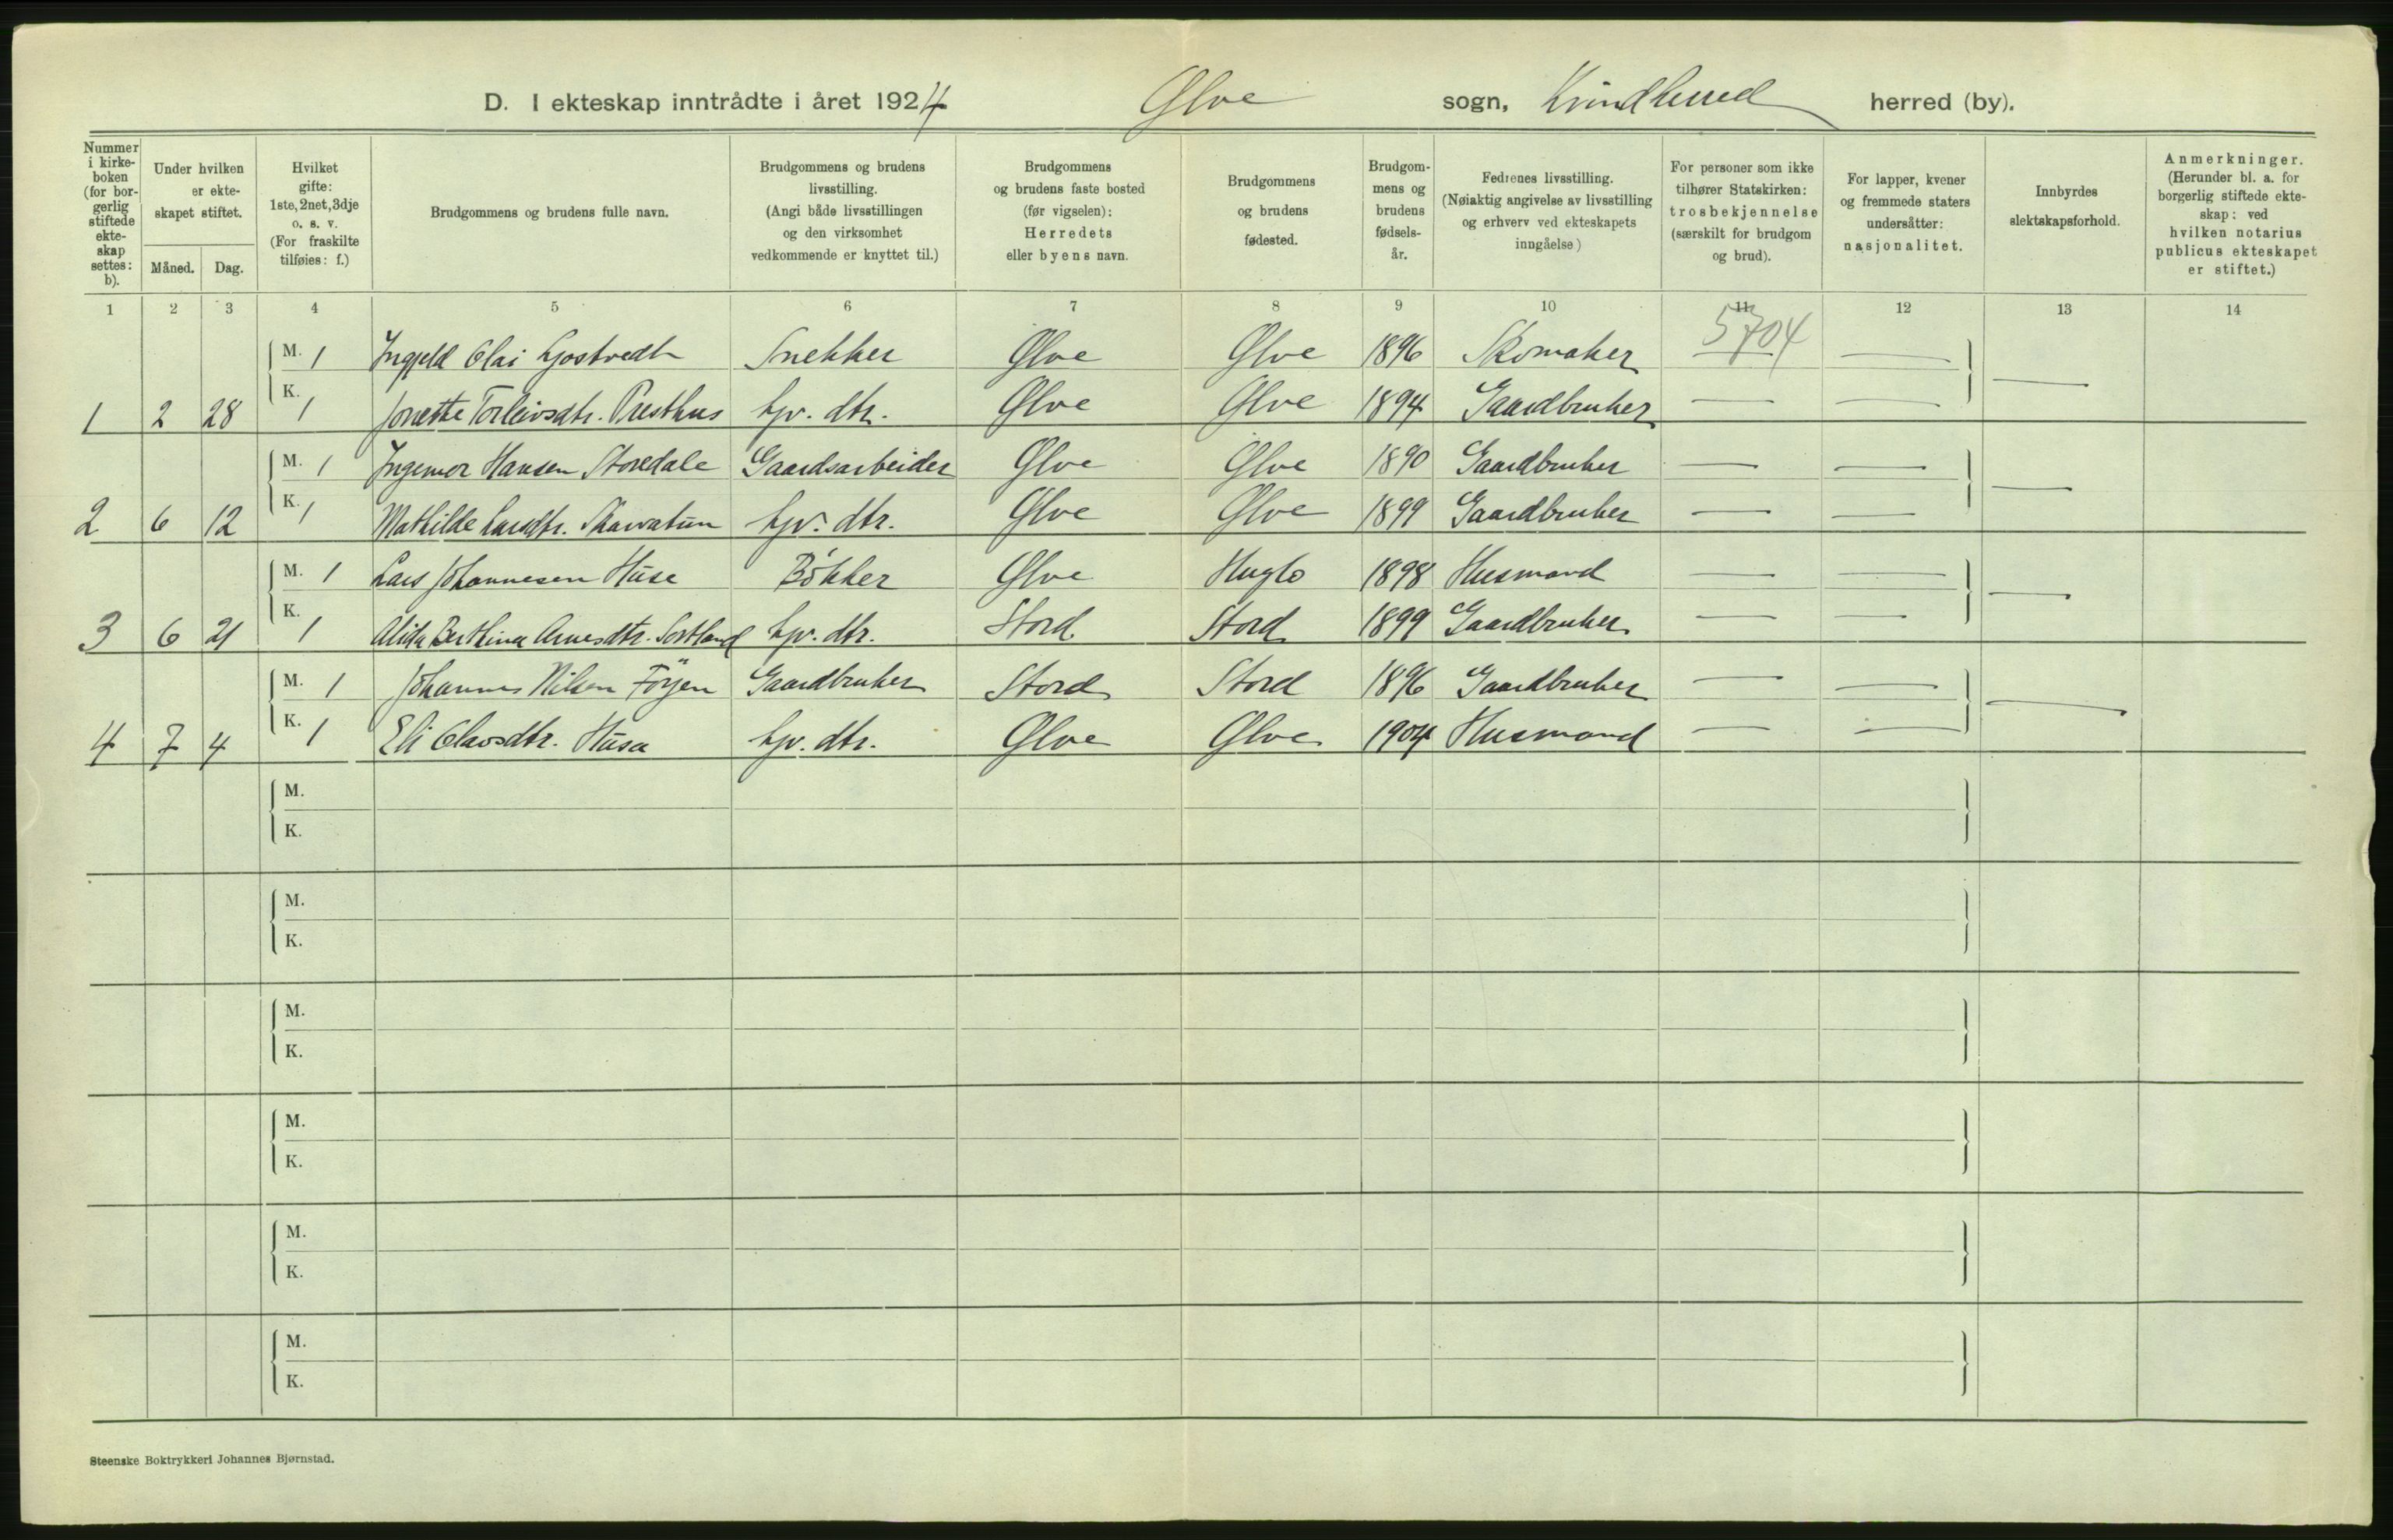 D. I ekteskap inntrådte i året 1924 Ølve sogn, Kvindherred herred (by).
Nummer i kirke-boken (for bor-gerlig stiftede ekte-skap settes: b).
Under hvilken er ekte-skapet stiftet.
Måned. Dag.
Hvilket gifte: 1ste, 2net, 3dje o. s. v. (For fraskilte tilføies: f.)
Brudgommens og brudens fulle navn.
Brudgommens og brudens livsstilling. (Angi både livsstillingen og den virksomhet vedkommende er knyttet til.)
Brudgommens og brudens faste bosted (før vigselen): Herredets eller byens navn.
Brudgommens og brudens fødested.
Brudgom-mens og brudens fødsels-år.
Fedrenes livsstilling. (Nøiaktig angivelse av livsstilling og erhverv ved ekteskapets inngåelse)
For personer som ikke tilhører Statskirken: trosbekjennelse (særskilt for brudgom og brud).
For lapper, kvener og fremmede staters undersåtter: nasjonalitet.
Innbyrdes slektskapsforhold.
Anmerkninger. (Herunder bl. a. for borgerlig stiftede ekte-skap: ved hvilken notarius publicus ekteskapet er stiftet.)
1 2 3 4 5 6 7 8 9 10 11 12 13 14
5704
M. 1 Olai Snekker Ølve Ølve 1896 Skomaker — —
1 2 28 K. 1 Torleivsdtr. Presthus hjv. dtr. Ølve Ølve 1894 Gaardbruker — —
M. 1 Ingemor Hansen Storedale Gaardsarbeider Ølve Ølve 1890 Gaardbruker — —
2 6 12 K. 1 Mathilde Larsdtr. hjv. dtr. Ølve Ølve 1899 Gaardbruker — — —
M. 1 Lars Johannesen Husa Bökker Ølve Huglo 1898 Husmand — —
3 6 21 K. 1 Alida Berthina Arnesdtr. Sortland hjv. dtr. Stord Stord 1899 Gaardbruker — — —
M. 1 Johannes Nilsen Föyen Gaardbruker Stord Stord 1896 Gaardbruker — —
4 7 4 K. 1 Eli Olavsdtr. Husa hjv. dtr. Ølve Ølve 1904 Husmand — — —
M.
K.
M.
K.
M.
K.
M.
K.
M.
K.
M.
K.
Steenske Boktrykkeri Johannes Bjørnstad.